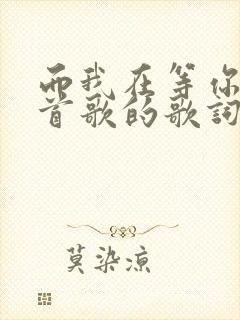 而我在等你
首歌的歌词
莫染凉